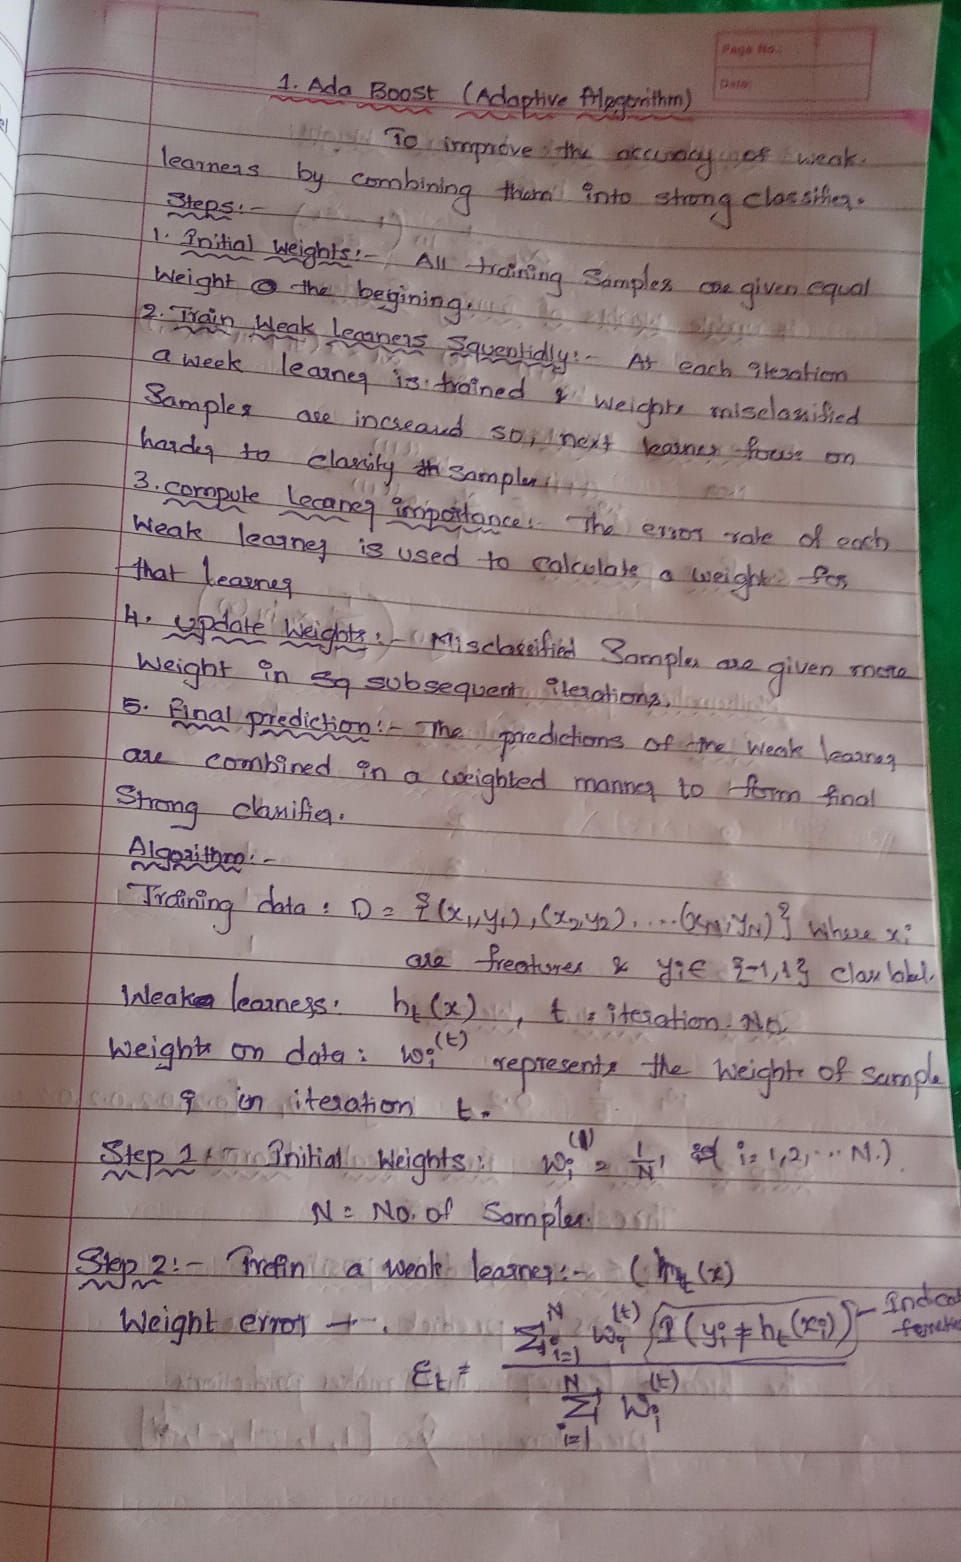 Page No.:
Date:
1. Ada Boost (Adaptive Alogorithm)
To improve the accuracy of weak
learners by combining them into strong classifier.
Steps:-
1. Initial Weights:- All training Samples are given equal
Weight @ the begining.
2. Train Weak learners Squentidly:- At each iteration
a week learner is trained & weights misclassified
Samples are increasd so, next learner focus on
harder to classify sample.
3. compute Lecaner importance: The error rate of each
Weak learner is used to calculate a weight for
that learner
4. Update Weights:- Misclassified Samples are given more
Weight in subsequent iterations.
5. Final prediction:- The predictions of the Weak learner
are combined in a weighted manner to form final
Strong classifier.
Algorithm:-
Training data: D = {(x₁,y₁),(x₂,y₂),....(x_N,y_N)} where xᵢ
are freatures & yᵢ ∈ {-1,1} class label.
Weak learness: hₜ(x), t = iteration No.
Weights on data: wᵢ^(t) represents the Weights of sample
i in iteration t.
Step 1:- Initial Weights: wᵢ^(1) = 1/N, i=1,2,...N.)
N = No. of Samples.
Step 2:- Train a weak learner:- (hₜ(x)
Weight error →.
εₜ = Σ_{i=1}^{N} wᵢ^(t) I(yᵢ ≠ hₜ(xᵢ)) / Σ_{i=1}^{N} wᵢ^(t)